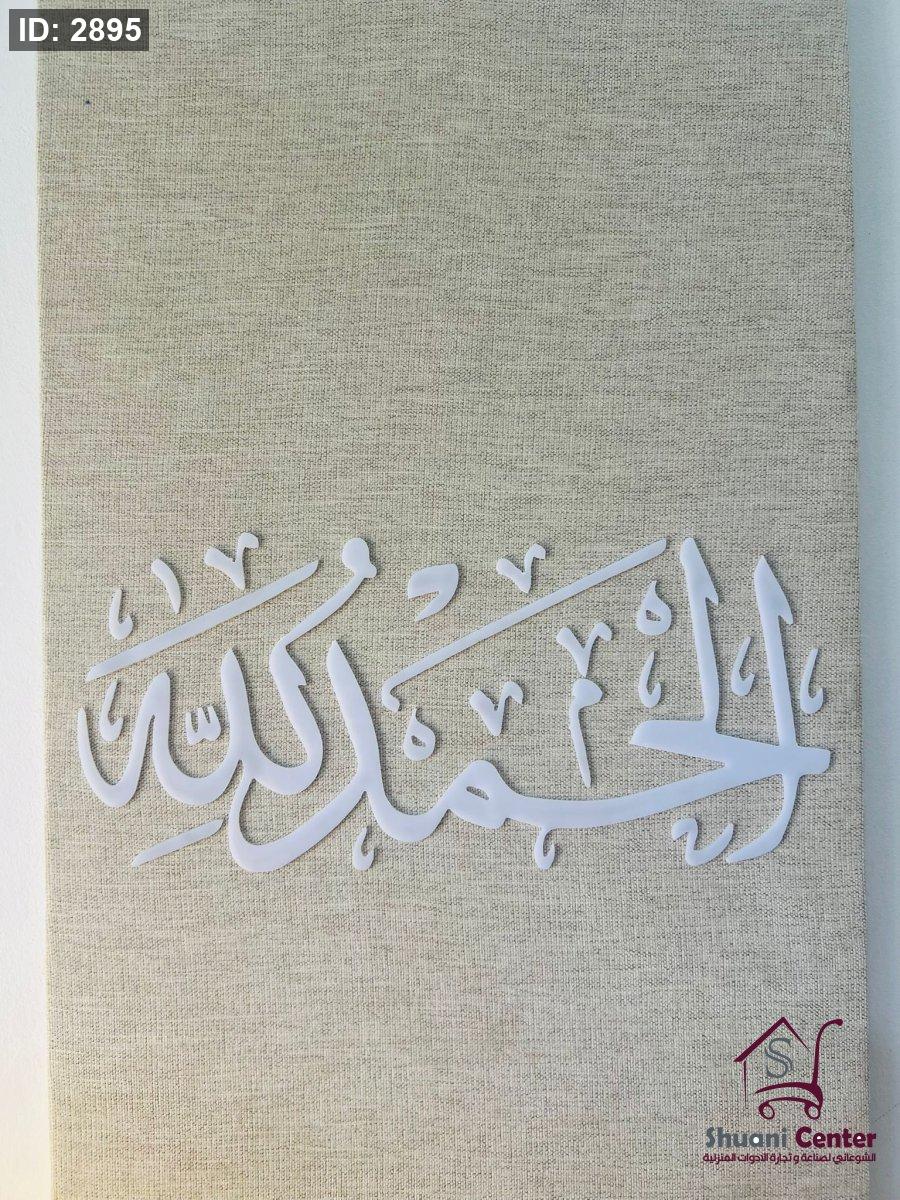 ID: 2895
الحمد لله
Shuani Center
الشوعاني لصناعة و تجارة الادوات المنزلية